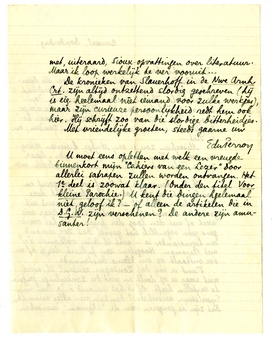 met, uiteraard, Sioux-opvattingen over literatuur.
Maar ik loop werkelijk te ver vooruit...
De kronieken van Slauerhoff in de Nwe Arnh.
Crt. zijn altijd ontzettend slordig geschreven (hij
is eig. heelemaal niet iemand voor zulke werkjes),
maar zijn curieuze persoonlijkheid redt hem ook
hier. Hij schrijft zoo van die slordige bitterheidjes.
Met vriendelijke groeten, steeds gaarne uw
EduPerron
U moet eens opletten met welk een vreugde
binnenkort mijn "Cahiers van een Lezer" door
allerlei satrapen zullen worden ontvangen. Het
1e deel is zoowat klaar. (Onder den titel Voor
kleine Parochie.) U kent die dingen heelemaal
niet geloof ik? — of alleen de artikelen die in
D.G.W. zijn verschenen? De andere zijn amu-
santer!